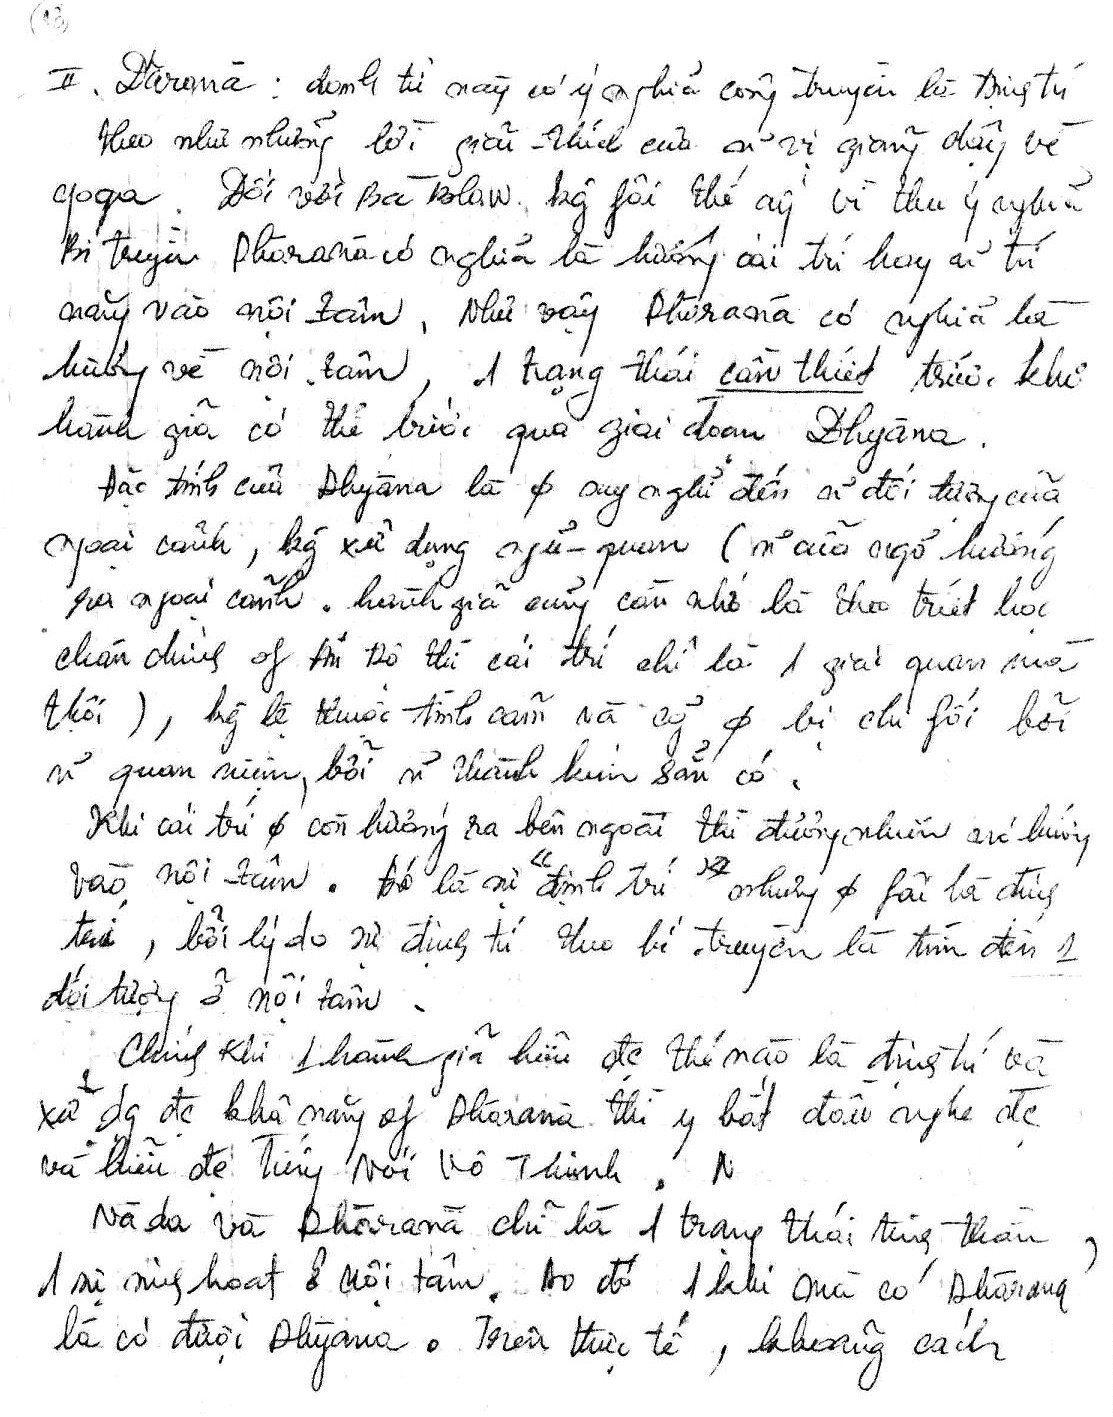 (13)
II. Dãranā : danh từ này có ý nghĩa công truyền là Định trí
theo như những lời giải-thích của n' vị giảng dậy về
yoga. Đối với Bà Blaw. kg fải thế ấy vì theo ý nghĩa
Bí truyền Dhāranā có nghĩa là hướng cái trí hay n' trí
năng vào nội tâm. Như vậy Dhāranā có nghĩa là
hướng về nội tâm, 1 trạng thái cần thiết trước khi
hành giả có thể bước qua giai đoạn Dhyāna.
Đặc tính của Dhyāna là φ suy nghĩ đến n' đối tượng của
ngoại cảnh, kg xử dụng ngũ-quan (n' cửa ngõ hướng
ra ngoại cảnh. hành giả cũng cần nhớ là theo triết học
chân chính of Ấn Độ thì cái trí chỉ là 1 giác quan mà
thôi), kg lệ thuộc tình cảm và cg φ bị chi fối bởi
n' quan niệm, bởi n' thành kiến sẵn có.
Khi cái trí φ còn hướng ra bên ngoài thì đương nhiên nó hướng
vào nội tâm. Đó là sự "định trí" nhưng φ fải là định
trí, bởi lý do sự định trí theo bí truyền là tìm đến 1
đối tượng ở nội tâm.
Chính khi 1 hành giả hiểu đc thế nào là định trí và
xử dg đc khả năng of Dhāranā thì y bắt đầu nghe đc
và hiểu đc Tiếng Nói Vô Thinh. N
Nāda và Dhāranā chỉ là 1 trạng thái tinh thần,
1 sự sinh hoạt ở nội tâm. Do đó 1 khi mà có Dhārana
là có được Dhyana. Trên thực tế, khoảng cách